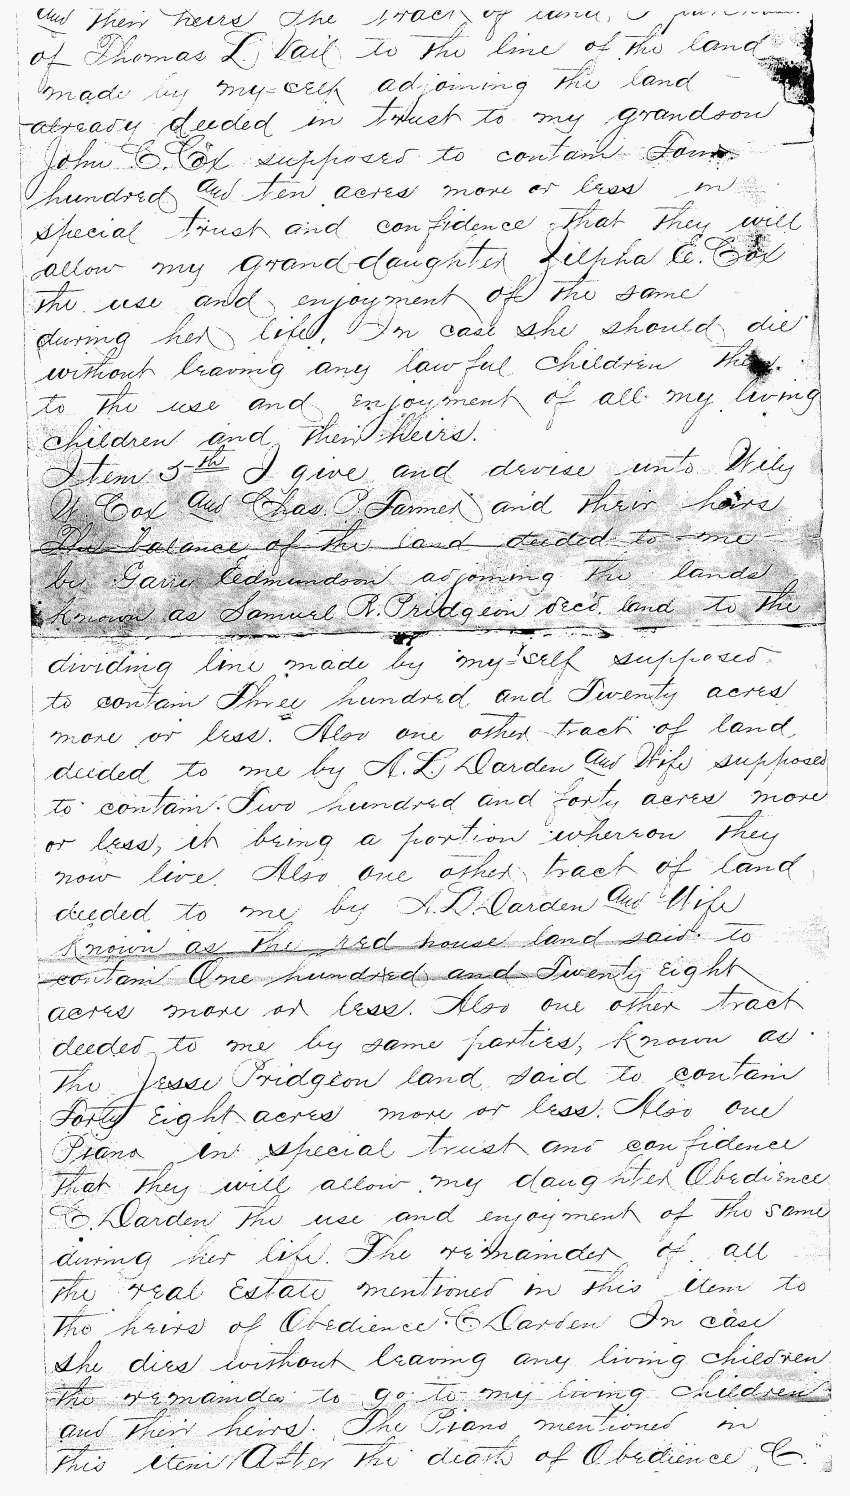 and their heirs The tract of land, I
of Thomas L. Vail to the line of the land
made by my=self adjoining the land
already deeded in trust to my grandson
John E. Cox supposed to contain Four
hundred and ten acres more or less in
special trust and confidence that they will
allow my grand-daughter Zilpha E. Cox
the use and enjoyment of the same
during her life. In case she should die
without leaving any lawful children then
to the use and enjoyment of all my living
children and their heirs.
Item 5th I give and devise unto Wily
W Cox and Chas. P. Farmer and their heirs
The balance of the land deeded to me
by Garry Eedmundson adjoining the lands
known as Samuel R. Pridgeon dec'd land to the
dividing line made by my=self supposed
to contain Three hundred and Twenty acres
more or less. Also one other tract of land,
deeded to me by A. L. Darden and Wife supposed
to contain Two hundred and forty acres more
or less, it being a portion whereon they
now live. Also one other tract of land
deeded to me by A. L. Darden and Wife
known as the red house land said to
contain One hundred and Twenty Eight
acres more or less. Also one other tract
deeded to me by same parties, known as
the Jesse Pridgeon land said to contain
Forty Eight acres more or less. Also one
Piano in special trust and confidence
that they will allow my daughter Obedience
C. Darden the use and enjoyment of the same
during her life. The remainder of all
the real Estate mentioned in this item to
the heirs of Obedience C Darden In case
she dies without leaving any living children
the remainder to go to my living children
and their heirs. The Piano mentioned in
this item After the death of Obedience C.